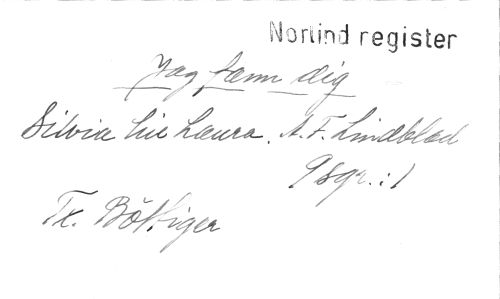 Norlind register
Jag fann dig
Silvia till Laura. A. F. Lindblad
9 sgr.: 1
Tx. Böttiger